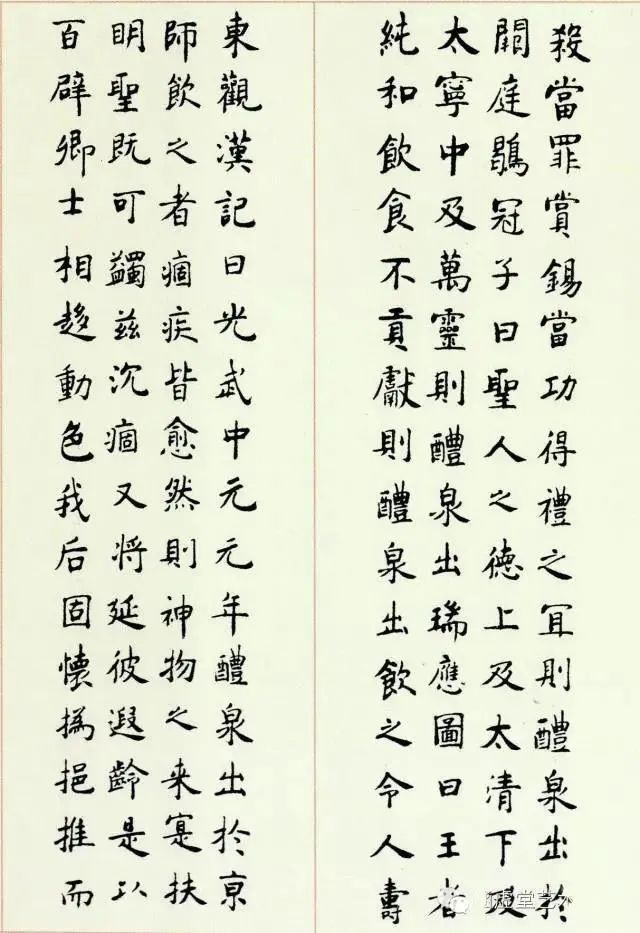 殺當罪賞錫當功得禮之宜則醴泉出於
闕庭鶡冠子曰聖人之德上及太清下及
太寧中及萬靈則醴泉出瑞應圖曰王者
純和飲食不貢獻則醴泉出飲之令人壽
東觀漢記曰光武中元元年醴泉出於京
師飲之者痼疾皆愈然則神物之来寔扶
明聖既可蠲茲沉痼又将延彼遐齡是以
百辟卿士相趍動色我后固懷撝挹推而